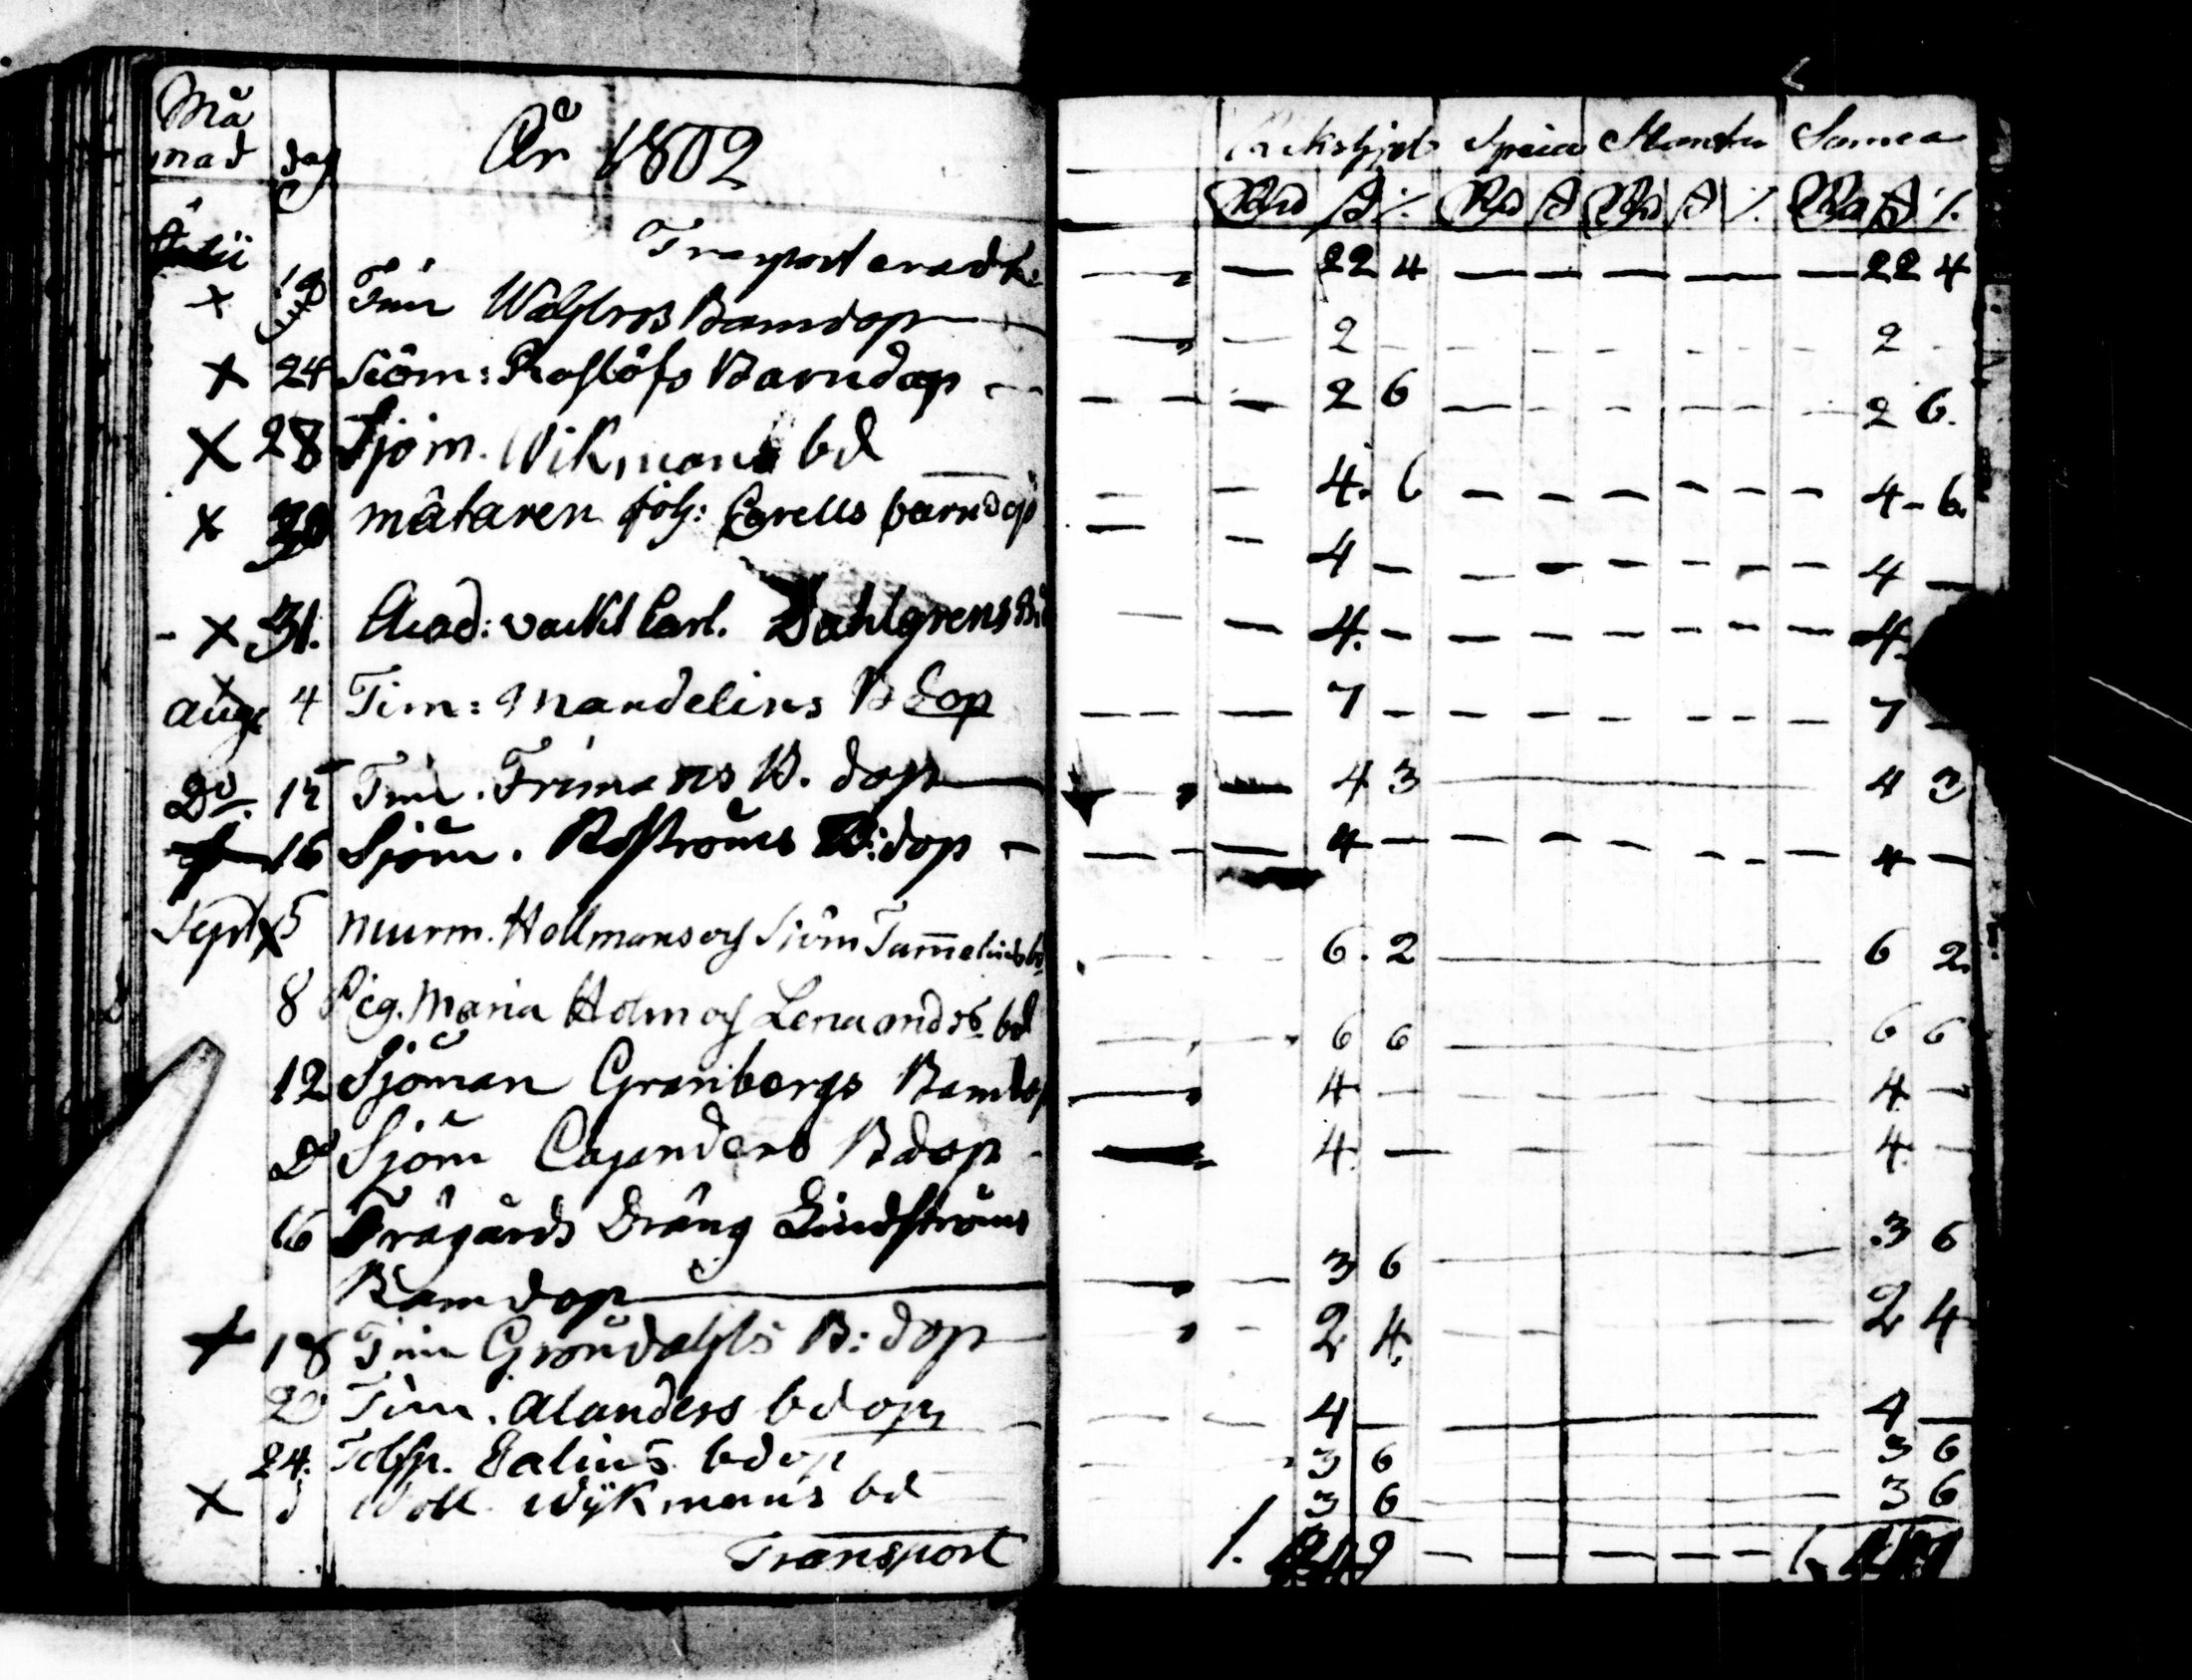 Må
nad dag År 1802 Riksgjel Specie Slantar Summa
Rd ß Rd ß Rd ß Rd ß
Julii Transport 22 4 — — — — — 22 4
× Tim Wahlroos Barndop — 2 2
× 24 Siöm: Roslöfs Barndop — 2 6 2 6.
× 28 Sjöm. Wikmans bd — 4. 6 4 - 6.
× 30 mätaren Joh: Corells barndop 4 — 4 —
- × 31. Acad: vackt Carl. Dahlgrens 4. — 4.
× aug 4 Tim: Mandelins Bdop 7 — 7 —
Do. 15 Tim. Frimans B. dop — 4 3 4 3
16 Sjöm. Roströms B:dop — 4 — 4 —
Sept × 5 Murm. Hollmans och Siöm Tam̄elins bd 6. 2 6 2.
8 Pig. Maria Holm och Lena bd 6 6 6 6
12 Sjöman Granbergs Barndop 4 — 4. —
Do Sjöm Cajanders Bdop 4. — 4. —
16 Trägårds Dräng Lindströms
Barndop — 3 6 3 6
× 18 Tim Gröndahls B: dop — 2 4. 2 4
20 Tim. Alanders bdop 4 — 4 —
24. Salins bdop 3 6 3 6
× d Wikmans bd 3 6 3 6
Transport 1.